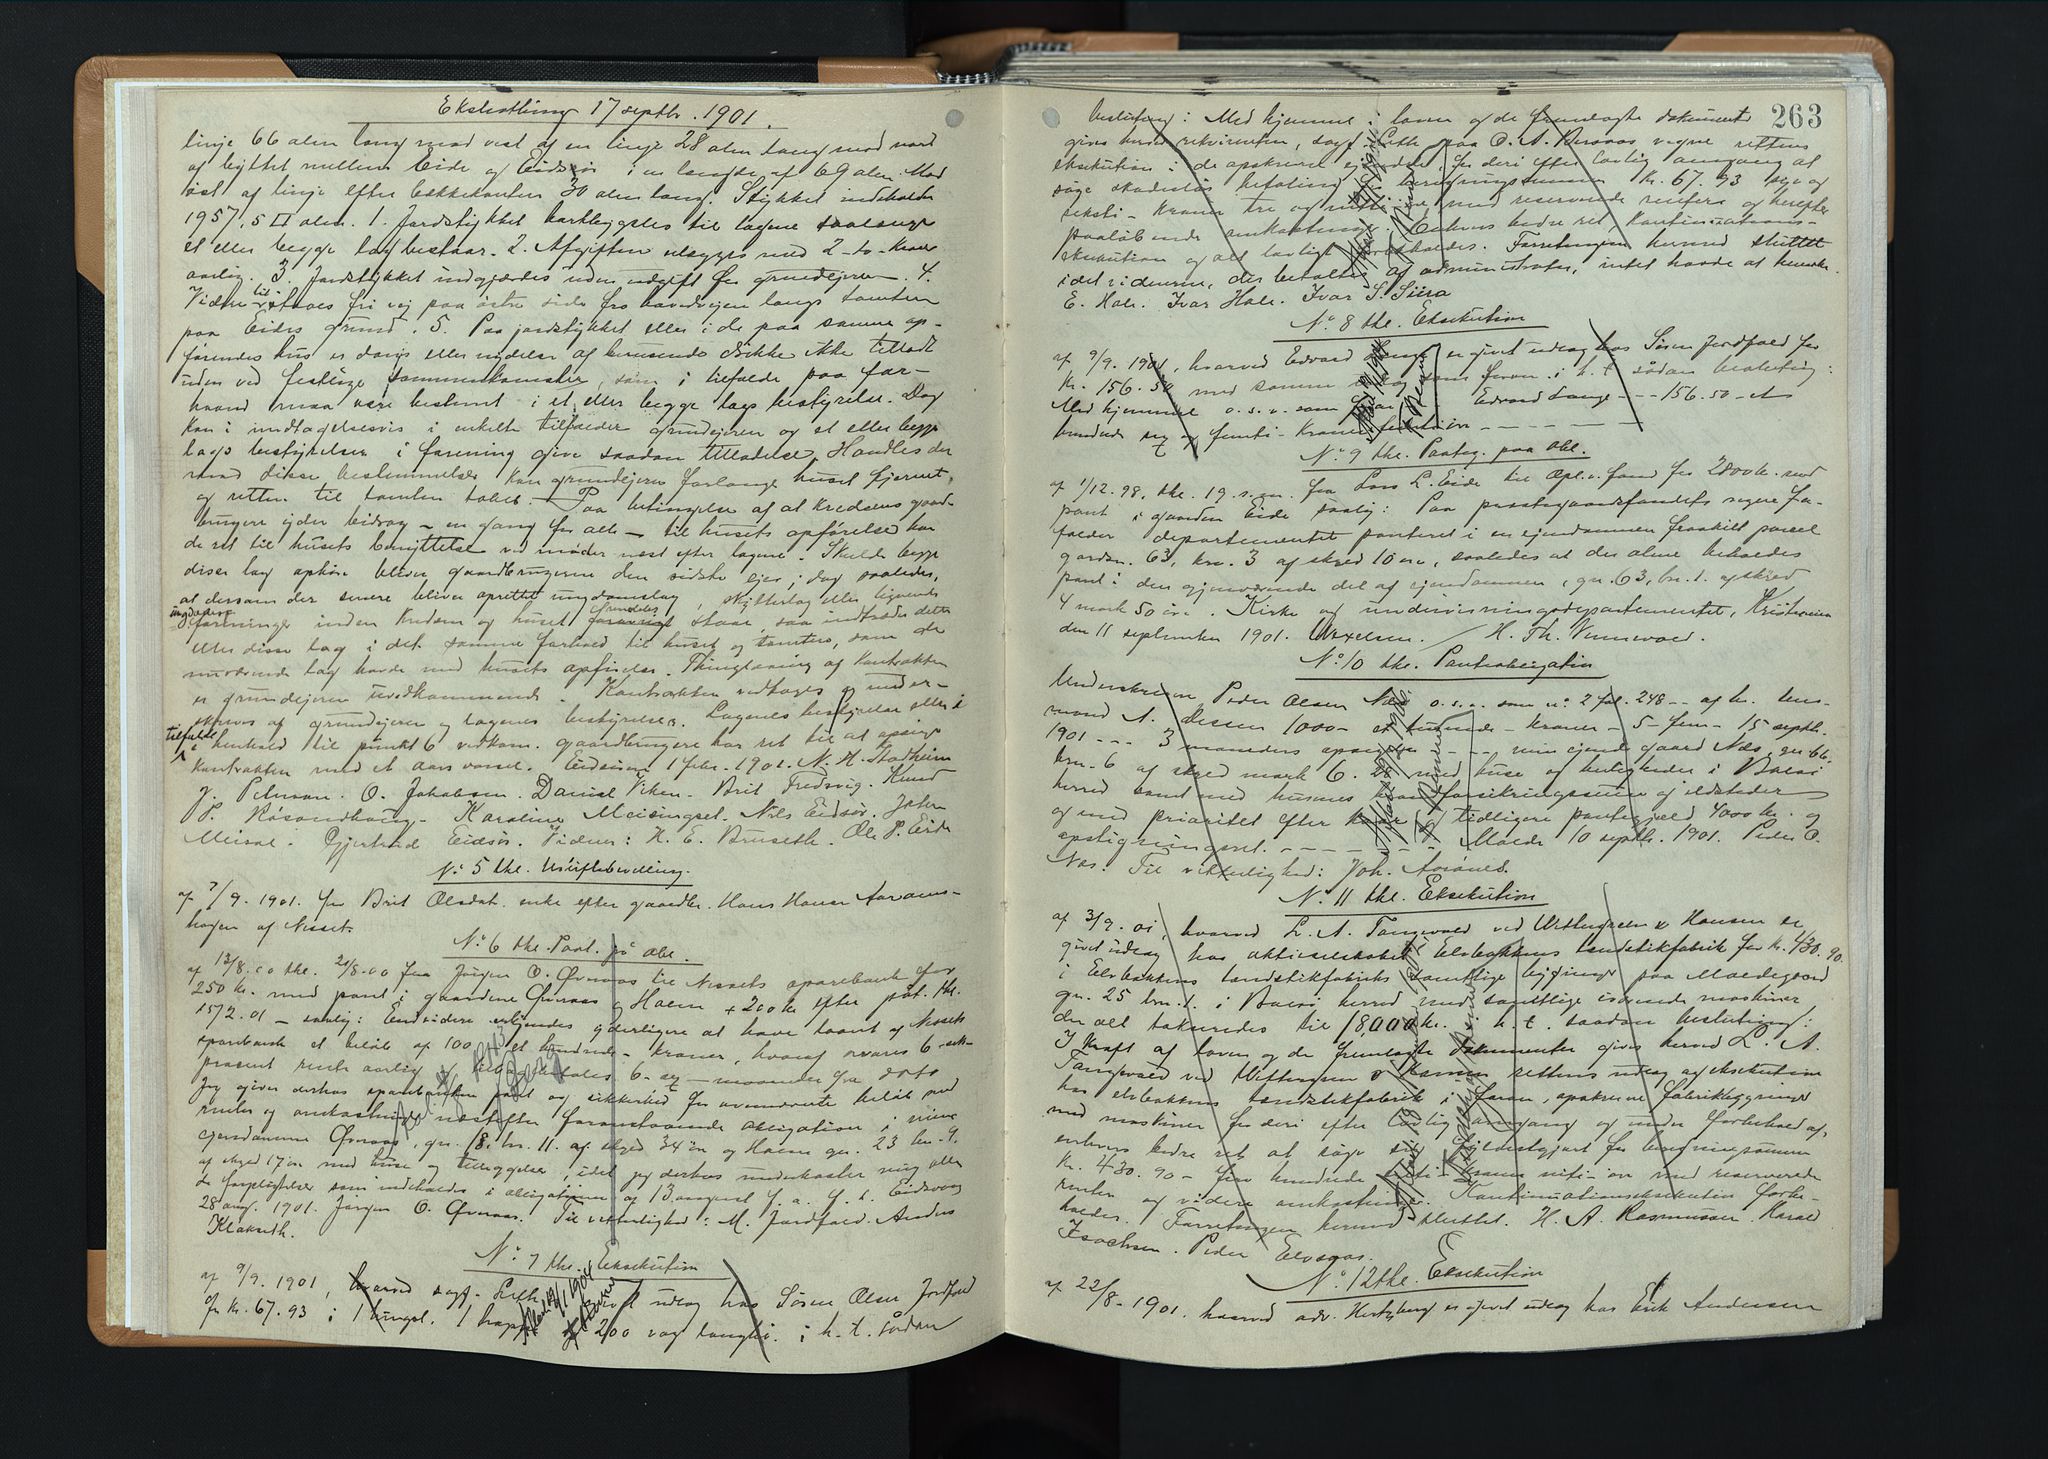 Ekstrathing 17 septbr. 1901.
linje 66 alen lang mod vest af en linje 28 alen lang mod nord
af byttet mellem Eide og Eidsør i en længde af 69 alen. Mod
øst af linje efter bækkekanten 30 alen lang. Stykket indeholder
1957,5 □ alen. 1. Jordstykket bortbygsles til lagene saalænge
et eller begge lag bestaar. 2. Afgiften erlægges med 2 - to - kroner
aarlig. 3. Jordstykket indgjærdes uden udgift for grundejeren. 4.
Videre tilstaaes fri vej paa østre side fra hovedvejen langs tomten
paa Eides grund. 5. Paa jordstykket eller i de paa samme op-
førendes hus er dans eller nydelse af berusende drikke ikke tilladt
uden ved festlige sammenkomster, som i tilfælde paa for-
haand maa være bestemt i et eller begge lags bestyrelse. Dog
kan i undtagelsesvis i enkelte tilfælder grundejeren og et eller begge
lags bestyrelser i forening give saadan tilladelse. Handles der
mod disse bestemmelser kan grundejeren forlange huset fjernet
og retten til tomten tabes. Paa betingelse af at kredsens gaard-
brugere yder bidrag - en gang for alle - til husets opførelse har
de ret til husets benyttelse ved møder næst efter lagene. Skulde begge
disse lag ophøre bliver gaardbrugerne den sidste ejer; dog saaledes,
at dersom der senere bliver oprettet ungdomslag, skytterlag eller lignende
ungdomsforeninger inden kredsen og huset fremdeles staar, saa indtræder dette
eller disse lag i det samme forhold til huset og tomten, som de
nuværende lag havde ved husets opførelse. Thinglæsning af kontrakten
er grundejeren uvedkommende. Kontrakten vedtages og under-
skrives af grundejeren og lagenes bestyrelser. Lagenes bestyrelse eller i
tilfælde i henhold til punkt 6 vedkom. gaardbrugere har ret til at opsige
kontrakten med et aars varsel. Eidsør 1 febr. 1901. N. H. Stadheim
J. Petersen. O. Jakobsen. Daniel Viken. Brit Fredsvig. Knud
P. Røsandhaug. Karoline Meisingset. Nils Eidsør. John
Meisal. Gjertrud Eidsør. Vidner: H. E. Bruseth. Ole P. Eide
No 5 thl. Uskiftebevilling.
af 7/9. 1901. for Brit Olsdat. enke efter gaardbr. Hans Hansen Aarams-
haugen af Nesset.
No 6 thl. Paat. på obl.
af 13/8.00 thl. 21/8.00 fra Jørgen O. Øveraas til Nessets sparebank for
250 kr. med pant i gaardene Øveraas og Hoem + 200 kr efter påt. thl.
1572.01 - saalg: Endvidere erkjendes yderligere at have laant af Nessets
sparebank et beløb af 100 - et hundrede - kroner, hvoraf svares 6 - sek-
procent rente aarlig 6 - sex - maaneder fra dato
Jeg giver derhos sparebanken pant og sikkerhed for ovennævnte beløb med
renter og omkostninger næstefter foranstaaende obligation i mine
ejendomme Øveraas, gn. 18, br. 11. af skyld 34 øre og Hoem gn. 23 bn. 9.
af skyld 17 øre med huse og tilliggelser, idet jeg derhos underkaster mig alle
de forpligtelser som indeholdes i obligationen af 13 august f. a. Eidsvaag
28 aug. 1901. Jørgen O. Øveraas. Til vitterlighed: M. Jordfald. Anders
Klokseth.
No 7 thl. Eksekution
af 9/9. 1901, hvorved sagf. Leth udlæg hos Søren Olsen Jordfald
for kr. 67.93 i 1 kongel. 1 200 vog langhø. i h. t. sådan
263
beslutning: Med hjemmel i loven og de fremlagte dokumenter
gives herved rekvirenten, sagf. Leth paa O. A. Øveraas vegne rettens
eksekution i de opskrevne ejendele for deri efter lovlig omgang at
søge skadesløs befaling for beregningssummen kr. 67.93 syv og
seksti - kroner tre og nitti øre med reserverede renter og herefter
paaløbende omkostninger. Enhvers bedre ret, kontinuations-
ekskution og alt lovligt forbeholdes. Forretningen hermed sluttet
idet vidnerne, der betaltes af administrator, intet havde at bemerke.
E. Hole. Ivar Hole. Ivar S. Siira
No 8 thl. Eksekution
af 9/9. 1901, hvorved Edvard Lange er givet udlæg hos Søren Jordfald for
kr. 156.50 med samme udlæg som foran i h. t. sådan beslutning:
Med hjemmel o. s. v. som foran Edvard Lange - - - 156.50 - et
hundrede sex og femti - kroner femti øre - - - - -
No 9 thl. Paateg. paa obl.
af 1/12. 98, thl. 19. s. m. fra Lars L. Eide til Opl. v. fond for 2800 kr. med
pant i gaarden Eide saalg: Paa præstegaardsfondets vegne fra-
falder departementet panteret i en ejendommen fraskilt parcel
gardsn. 63, brn. 3 af skyld 10 øre, saaledes at der alene beholdes
pant i den gjenværende del af ejendommen, gn. 63, bn. 1. af skyld
4 mark 50 øre. Kirke og undervisningsdepartementet, Kristiania
den 11 september 1901. Wexelsen. / H. Th. Vennevold.
No 10 thl. Pantobligation
Underskrevne Peder Olsen Næs o. s. v. som no. 2 fol. 248 - - af hr. lens-
mand A. Dessen 1000 - et tusinde - kroner - 5 - fem - 15 septbr.
1901 - - - 3 maaneders opsigelse - - - min ejende gaard Næs, gn 66.
brn. 6 af skyld mark 6. med huse og herligheder i Bolsø
herred samt med husenes brandforsikringssum og ildsteder
og med prioritet efter tidligere pantegjæld 4000 kr. og
opstigningsret. - - - - - - Molde 10 septbr. 1901. Peder O.
Næs. Til vitterlighed: Joh. Aarønes.
No 11 thl. Eksekution
af 3/9. 01, hvorved L. A. Tangevald ved Wittergreen & Hansen er
givet udlæg hos aktieselskabet Elvbakkens tændstikfabrik for kr. 430.90.
i Elvbakkens tændstikfabriks samtlige bygninger paa Moldegaard
gn. 25 brn. 1. i Bolsø herred med samtlige iværende maskiner
der alt taksteredes til 18,000 kr. i h. t. saadan beslutning:
I kraft af loven og de fremlagte dokumenter gives herved L. A.
Tangevald ved Wittergreen & Hansen rettens udlæg og eksekution
hos elvbakkens tændstikfabrik i foran opskrevne fabrikbygninger
med maskiner for deri efter lovlig omgang og under forbehold af
enhvers bedre ret at søge sig skyldestgjort for beregningssummen
kr. 430.90 - fire hundrede tretti - kroner nitti - øre med reserverede
renter og videre omkostninger. Kontinuationseksekution forbe-
holdes. Forretningen hermed sluttet. H. A. Rasmussen. Harald
Isachsen. Peder Elvsaas.
No 12 thl. Eksekution
af 22/8. 1901. hvorved adv. Hertzberg er givet udlæg hos Erik Andersen